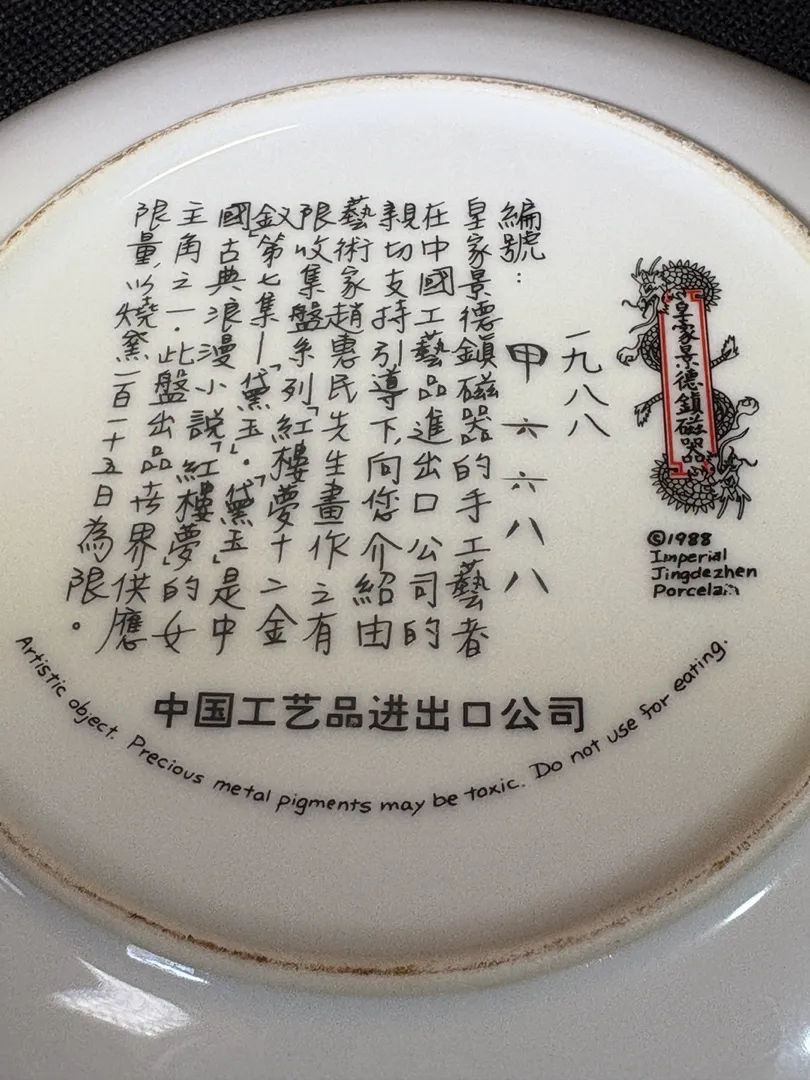 皇家景德鎮磁器
©1988
Imperial
Jingdezhen
Porcelain
一九八八
編號:甲六六八八
皇家景德鎮磁器的手工藝者
在中國工藝品進出口公司的
親切支持引導下,向您介紹由
藝術家趙惠民先生畫作之有
限收集盤系列「紅樓夢十二金
釵」第七集—「黛玉」。「黛玉」是中
國古典浪漫小說「紅樓夢」的女
主角之一.此盤出品世界供應
限量,以燒窯一百一十五日為限。
中国工艺品进出口公司
Artistic object. Precious metal pigments may be toxic. Do not use for eating.